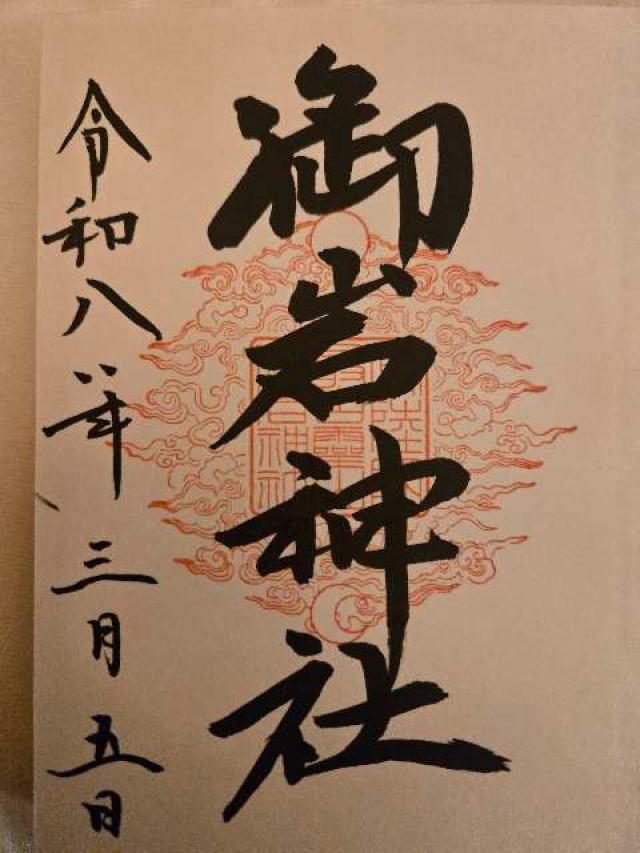 御岩神社
令和八年三月五日